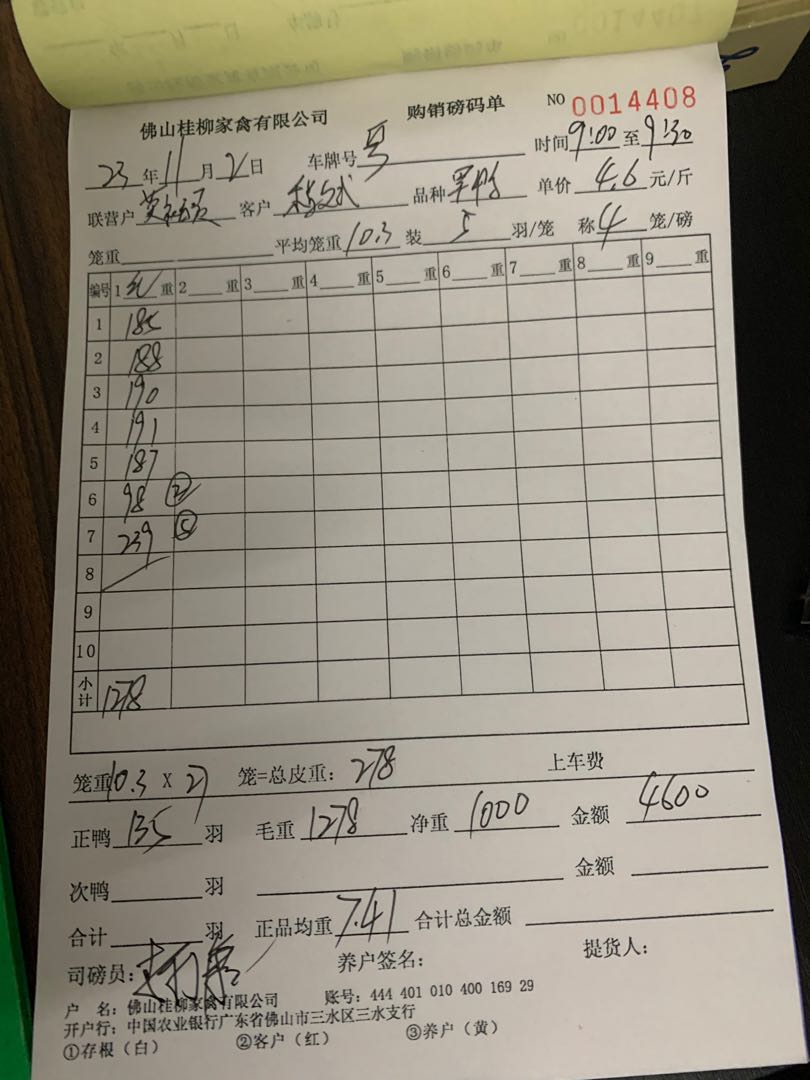 佛山桂柳家禽有限公司 购销磅码单 NO 0014408
23年11月2日 车牌号 时间9:00至9:30
联营户 客户 品种 单价4.6元/斤
笼重 平均笼重10.3 装5羽/笼 称4笼/磅
编号 1 重 2 重 3 重 4 重 5 重 6 重 7 重 8 重 9 重
1 185
2 188
3 190
4 191
5 187
6 98 ②
7 239 ⑤
8
9
10
小计 1278
笼重10.3 X 27 笼=总皮重:278 上车费
正鸭135羽 毛重1278 净重1000 金额4600
次鸭 羽 金额
合计 羽 正品均重7.41 合计总金额
司磅员: 养户签名: 提货人:
户 名:佛山桂柳家禽有限公司 账号:444 401 010 400 169 29
开户行:中国农业银行广东省佛山市三水区三水支行
①存根(白) ②客户(红) ③养户(黄)